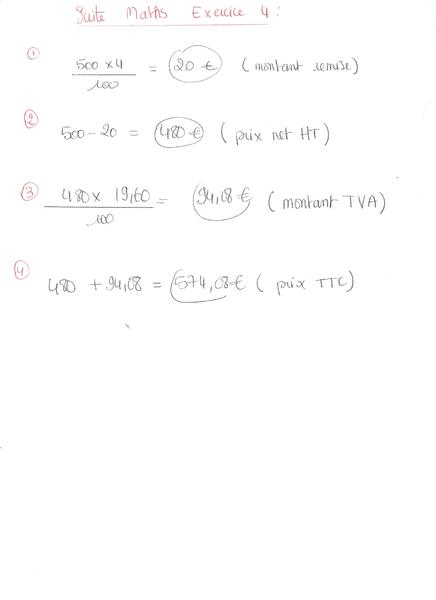 Suite Maths Exercice 4 :
① 500 x 4 / 100 = 20 € (montant remise)
② 500 - 20 = 480 € (prix net HT)
③ 480 x 19,60 / 100 = 94,08 € (montant TVA)
④ 480 + 94,08 = 574,08 € (prix TTC)